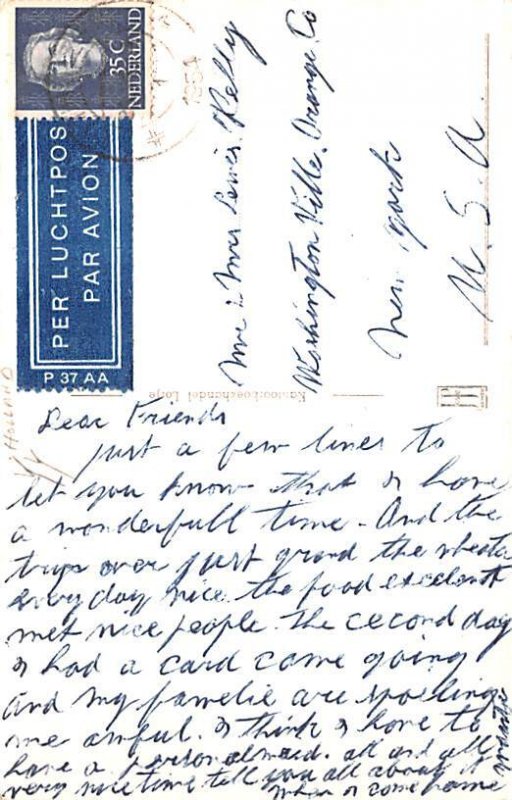 NEDERLAND
35 C
1954
PER LUCHTPOST
PAR AVION
P 37 AA
Mr & Mrs Lewis Kelly
Washington Ville. Orange Co
New york
U. S. A.
HOLLAND
Dear Friends
just a few lines to
let you know that I have
a wonderfull time - And the
trip over just grand the
every day nice the food excelent
met nice people. The cecond day
I had a card came going
and my familie are spoeling
me awful. I think I have to
have a personal maid. all and all
very nice time tell you all about it
when I come home